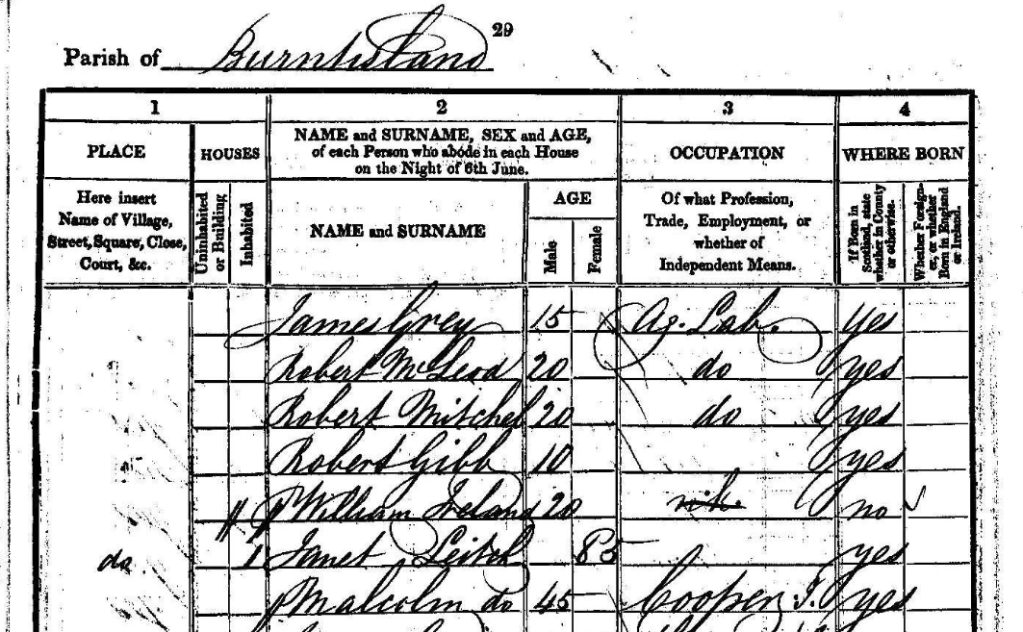 29
Parish of Burntisland
1 2 3 4
PLACE
Here insert
Name of Village,
Street, Square, Close,
Court, &c.
HOUSES
Uninhabited
or Building
Inhabited
NAME and SURNAME, SEX and AGE,
of each Person who abode in each House
on the Night of 6th June.
NAME and SURNAME
AGE
Male
Female
OCCUPATION
Of what Profession,
Trade, Employment, or
whether of
Independent Means.
WHERE BORN
If Born in
Scotland, state
whether in County
or otherwise.
Whether Foreign-
er, or whether
Born in England
or Ireland.
James Grey 15 Ag. Lab. yes
Robert McLeod 20 do yes
Robert Mitchel 20 do yes
Robert Gibb 10 yes
William Ireland 20 no
do 1 Janet Leitch 85 yes
Malcolm do 45 Cooper J. yes